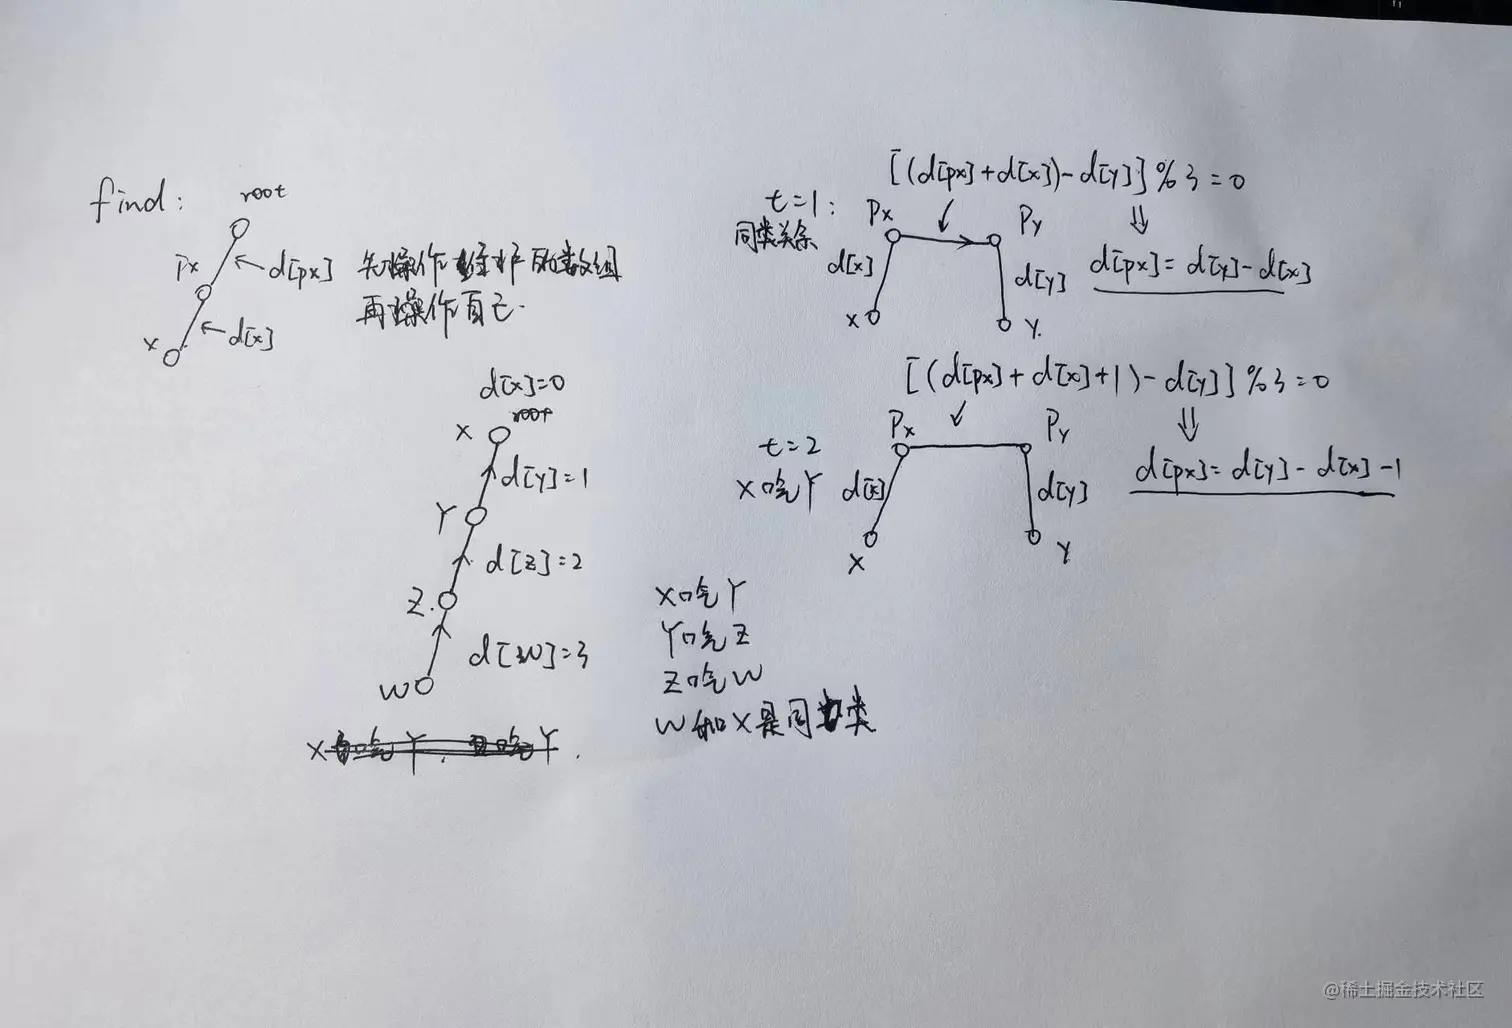 find:
root
px
d[px]
x
d[x]
先操作维护的数组
再操作自己.
d[x]=0
root
X
d[y]=1
Y
d[z]=2
Z.
d[w]=3
W
X吃Y
Y吃Z
Z吃W
W和X是同类
[(d[px]+d[x])-d[y]]%3=0
t=1:
同类关系
Px
Py
⇓
d[x]
d[y]
d[px]=d[y]-d[x]
X
Y.
[(d[px]+d[x]+1)-d[y]]%3=0
t=2
X吃Y
Px
Py
⇓
d[x]
d[y]
d[px]=d[y]-d[x]-1
X
Y
@稀土掘金技术社区